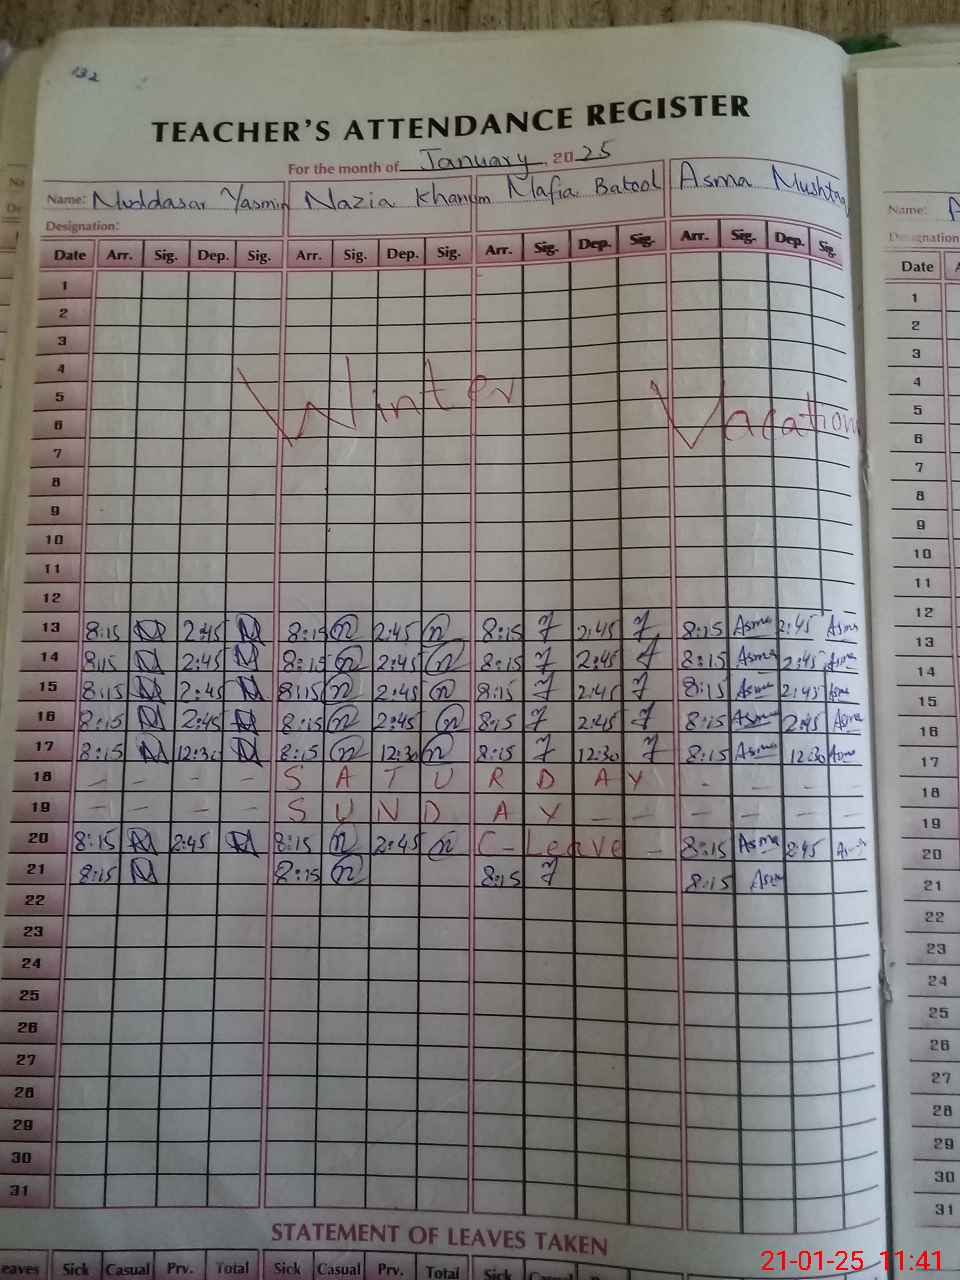 132
TEACHER'S ATTENDANCE REGISTER
For the month of January, 2025
Name: Muddasar Yasmin Nazia Khanum Mafia Batool Asma Mushtaq
Designation:
Date Arr. Sig. Dep. Sig. Arr. Sig. Dep. Sig. Arr. Sig. Dep. Sig. Arr. Sig. Dep. Sig.
1
2
3
4
5
6
Winter Vacation
7
8
9
10
11
12
13 8:15 2:45 8:15 n 2:45 n 8:15 2:45 8:15 Asma 2:45 Asma
14 8:15 2:45 8:15 n 2:45 n 8:15 2:45 8:15 Asma 2:45 Asma
15 8:15 2:45 8:15 n 2:45 n 8:15 2:45 8:15 Asma 2:45 Asma
16 8:15 2:45 8:15 n 2:45 n 8:15 2:45 8:15 Asma 2:45 Asma
17 8:15 12:30 8:15 n 12:30 n 8:15 12:30 8:15 Asma 12:30 Asma
18 – – – – S A T U R D A Y - - - -
19 – – – – S U N D A Y – – – – – –
20 8:15 2:45 8:15 n 2:45 n C-Leave – 8:15 Asma 2:45
21 8:15 8:15 n 8:15 8:15 Asm
22
23
24
25
26
27
28
29
30
31
STATEMENT OF LEAVES TAKEN
eaves Sick Casual Prv. Total Sick Casual Prv. Total Sick Casual
Name:
Designation
Date
1
2
3
4
5
6
7
8
9
10
11
12
13
14
15
16
17
18
19
20
21
22
23
24
25
26
27
28
29
30
31
21-01-25 11:41